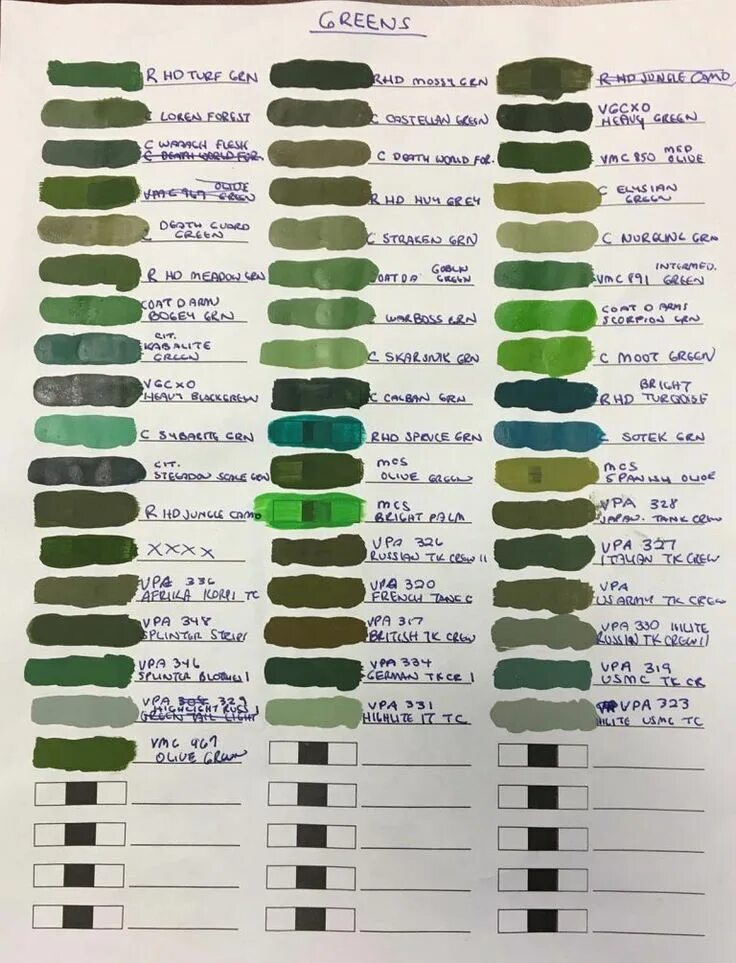 GREENS
R HD TURF GRN
RHD MOSSY GRN
R HD JUNGLE CAMO
C LOREN FOREST
C CASTELLAN GREEN
VGCXO
HEAVY GREEN
C WAAAGH FLESH
C DEATH WORLD FOR.
C DEATH WORLD FOR.
VMC 850 MED
OLIVE
OLIVE
VMC 967 GREEN
R HD HVY GREY
C ELYSIAN
GREEN
DEATH GUARD
GREEN
C STRAKEN GRN
C NURGLING GRN
R HD MEADOW GRN
GOBLIN
COAT D A GREEN
INTERMED.
VMC 891 GREEN
COAT D ARM
BOGEY GRN
C WARBOSS GRN
COAT D ARMS
SCORPION GRN
CIT.
KABALITE
GREEN
C SKARSNIK GRN
C MOOT GREEN
VGCXO
HEAVY BLACKGREEN
C CALBAN GRN
BRIGHT
R HD TURQOISE
C SYBARITE GRN
RHD SPRUCE GRN
C SOTEK GRN
CIT.
STEGADON SCALE GRN
MCS
OLIVE GREEN
MCS
SPANISH OLIVE
R HD JUNGLE CAMO
MCS
BRIGHT PALM
VPA 328
JAPAN. TANK CREW
XXXX
VPA 326
RUSSIAN TK CREW II
VPA 327
ITALIAN TK CREW
VPA 336
AFRIKA KORPS TC
VPA 320
FRENCH TANK C
VPA
US ARMY TK CREW
VPA 348
SPLINTER STRIPS
VPA 317
BRITISH TK CREW
VPA 330 HILITE
RUSSIN TK CREW II
VPA 346
SPLINTER BLOTCHE I
VPA 334
GERMAN TK CR I
VPA 319
USMC TK CR
VPA 329
HIGHLIGHT RUSS I
GREEN TAIL LIGHT
VPA 331
HIGHLITE IT TC
VPA 323
HILITE USMC TC
VMC 967
OLIVE GREEN